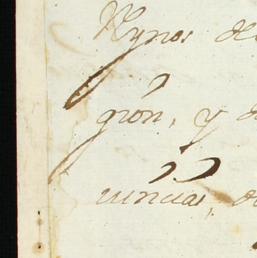 Rynos de
gion, y d
uincias, d